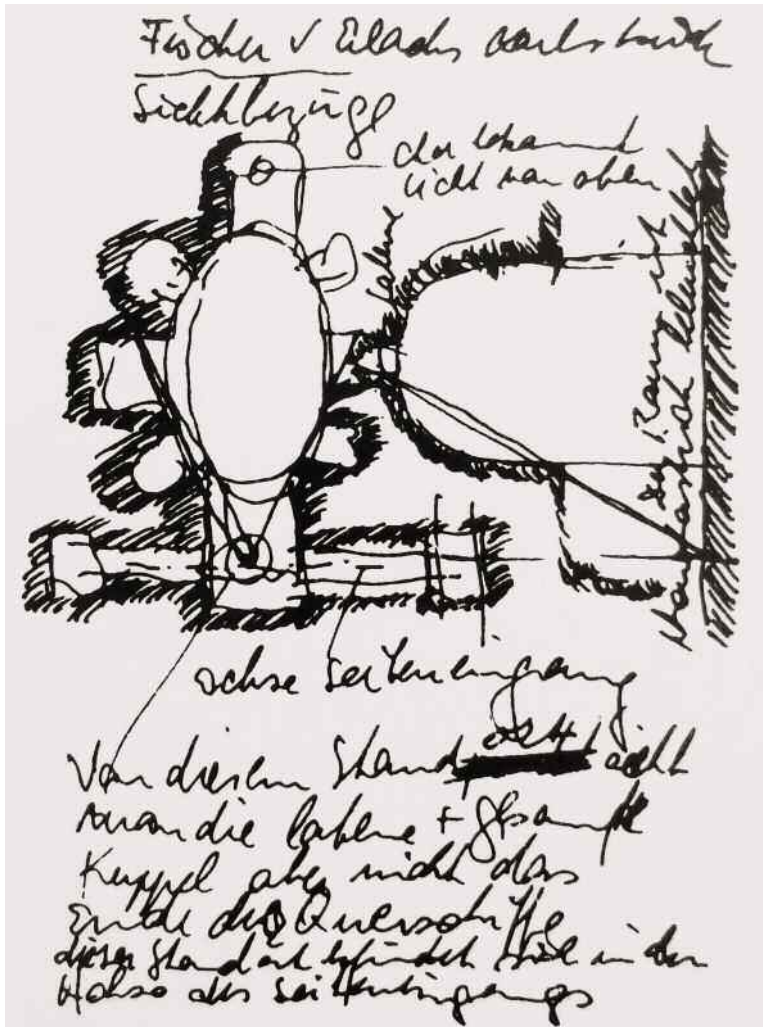 Fischer v Erlach Karlskirche
Sichtbezüge
der bekannte
licht von oben
Laterne
Der Raum ist
achse seiteneingang
Von diesem Standort sieht
man die laterne + gesamte
Kuppel aber nicht das
Ende des Querschiffs
dieser Standort befindet sich in der
Achse des Seiteneingangs